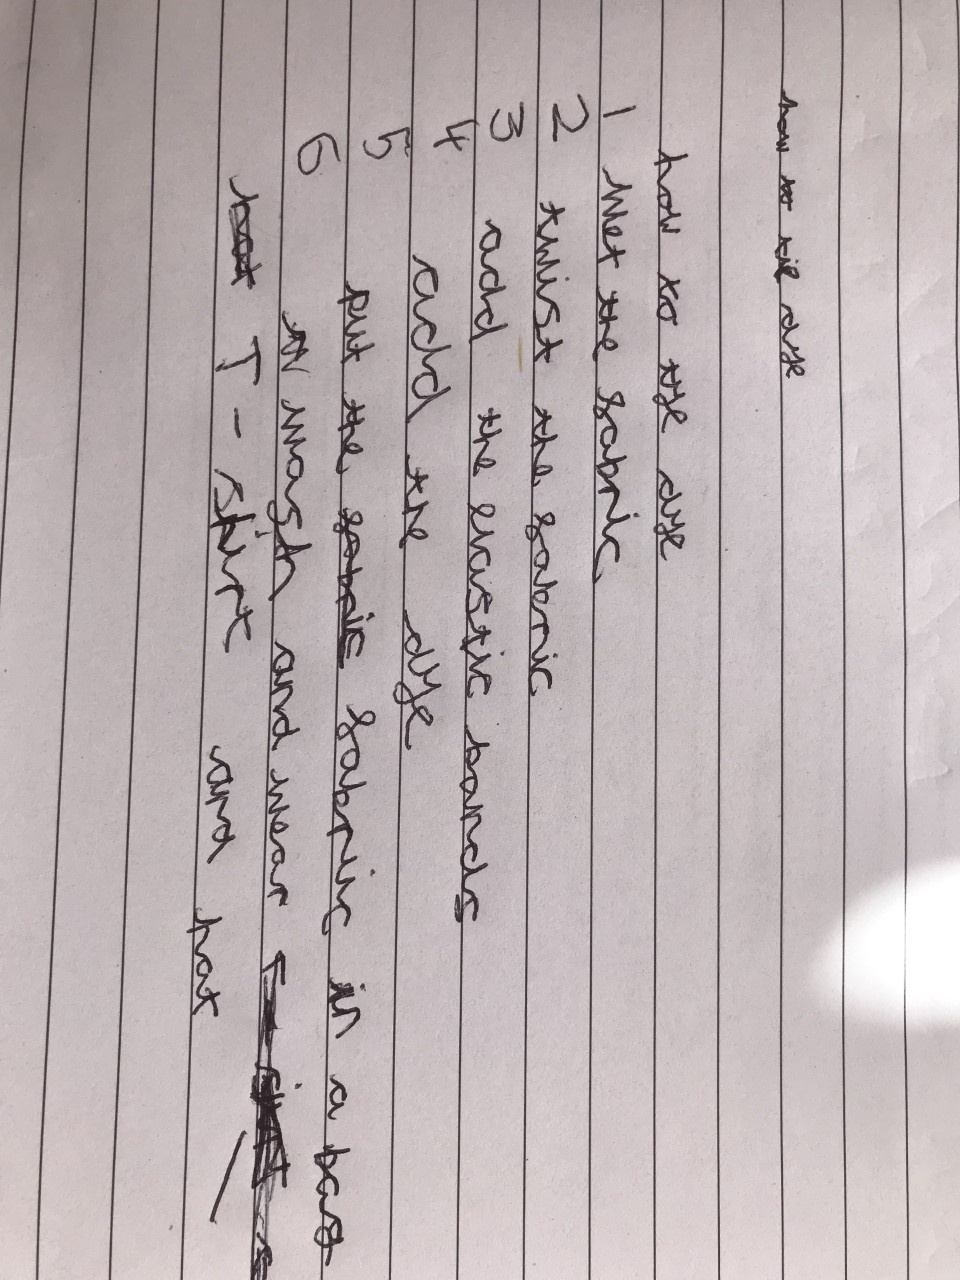 how to tie dye
how to tye dye
1 wet the fabric
2 twist the fabric
3 add the elastic bands
4 add the dye
5 put the fabric fabric in a bag
6 wash and wear
hat T-shirt and hat